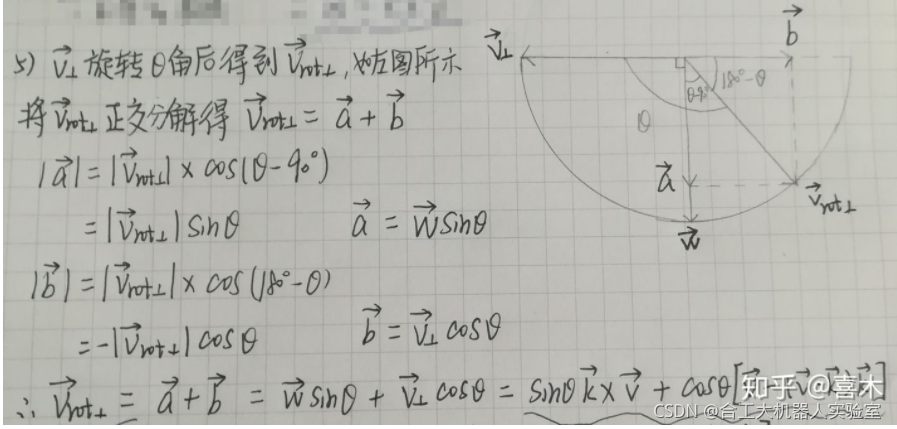 5) v⊥ 旋转θ角后得到 v rot⊥,如右图所示
将 v rot⊥ 正交分解得 v rot⊥ = a + b
|a| = |v rot⊥| × cos(θ-90°)
= |v rot⊥| sinθ a = w sinθ
|b| = |v rot⊥| × cos(180°-θ)
= -|v rot⊥| cosθ b = v⊥ cosθ
∴ v rot⊥ = a + b = w sinθ + v⊥ cosθ = sinθ k × v + cosθ[
v⊥
b
θ
θ-90°
180°-θ
a
w
v rot⊥
知乎 @喜木
CSDN @合工大机器人实验室